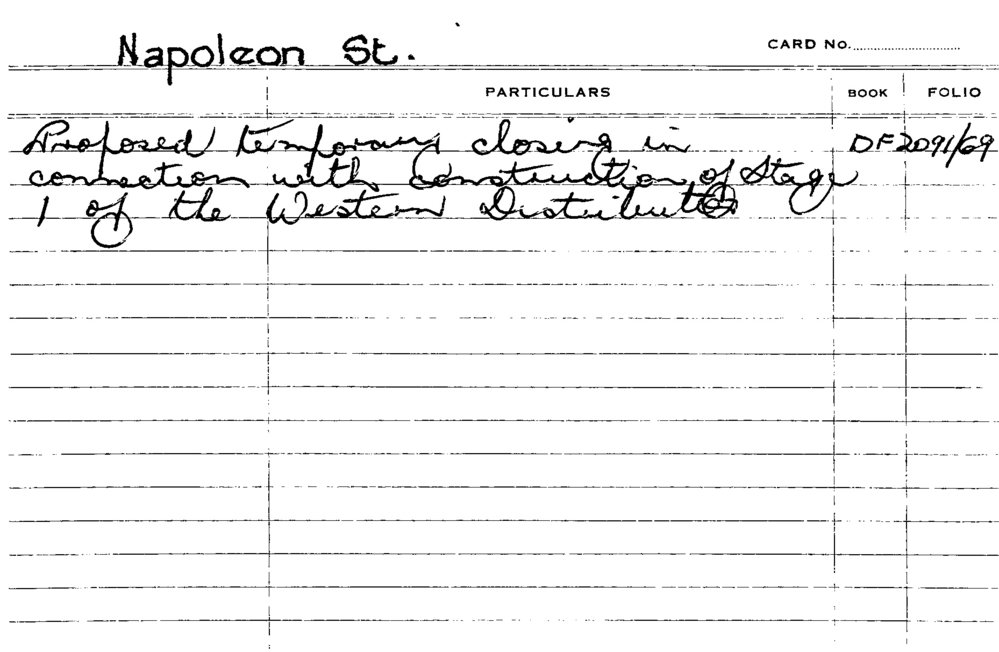 Napoleon St.
CARD No.
PARTICULARS BOOK FOLIO
Proposed temporary closing in DF2091/69
connection with construction of Stage
1 of the Western Distributor